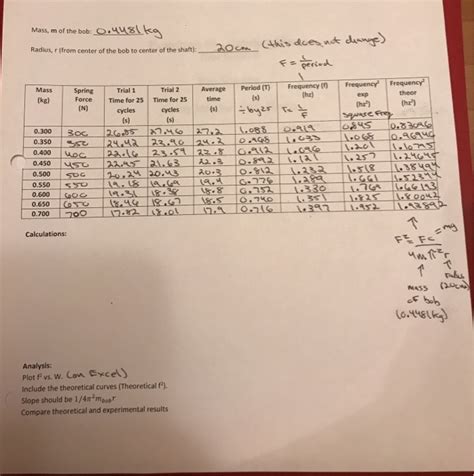 Mass, m of the bob: 0.4481 kg
Radius, r (from center of the bob to center of the shaft): 20cm (this does not change)
F = 1/period
Mass (kg) Spring Force (N) Trial 1 Time for 25 cycles (s) Trial 2 Time for 25 cycles (s) Average time (s) Period (T) (s) ÷ by 25 Frequency (f) (hz) T= 1/F Frequency² exp (hz²) square freq Frequency² theor (hz²)
0.300 300 26.85 27.46 27.2 1.088 0.919 0.845 0.83096
0.350 350 24.42 23.90 24.2 0.968 1.033 1.068 0.96946
0.400 400 22.16 23.59 22.8 0.912 1.096 1.201 1.10795
0.450 450 22.45 21.63 22.3 0.892 1.121 1.257 1.24645
0.500 500 20.24 20.43 20.3 0.812 1.232 1.518 1.38494
0.550 550 19.18 19.69 19.4 0.776 1.289 1.661 1.52344
0.600 600 19.31 18.38 18.8 0.752 1.330 1.769 1.66193
0.650 650 18.46 18.67 18.5 0.740 1.351 1.825 1.80042
0.700 700 17.82 18.01 17.9 0.716 1.397 1.952 1.93892
Calculations:
F² = Fc = mg
4mπ²r
mass of bob (0.4481kg)
(20cm)
Analysis:
Plot f² vs. W. (on Excel)
Include the theoretical curves (Theoretical f²).
Slope should be 1/4π²m_bob r
Compare theoretical and experimental results